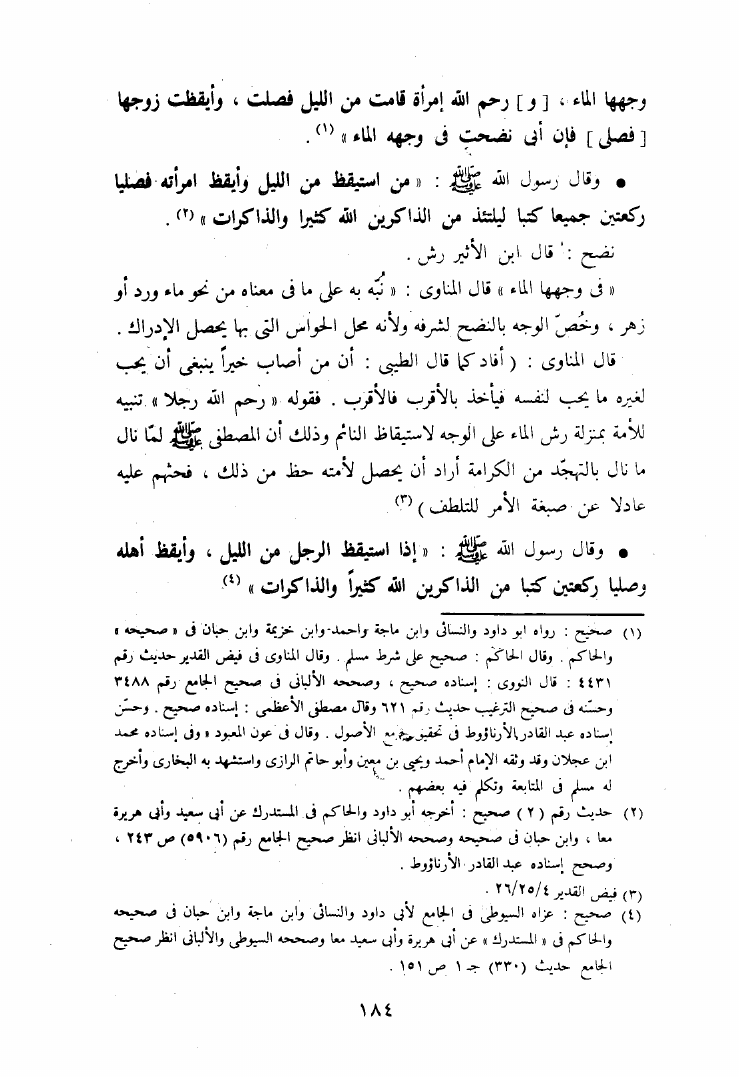 وجهها الماء ، [ و ] رحم الله إمرأة قامت من الليل فصلت ، وأيقظت زوجها
[ فصلى ] فإن أبى نضحت فى وجهه الماء » (١) .
• وقال رسول الله ﷺ : « من استيقظ من الليل وأيقظ امرأته فصليا
ركعتين جميعا كتبا ليلتئذ من الذاكرين الله كثيرا والذاكرات » (٢) .
نضح : قال ابن الأثير رش .
« فى وجهها الماء » قال المناوى : « نُبّه به على ما فى معناه من نحو ماء ورد أو
زهر ، وخُصّ الوجه بالنضح لشرفه ولأنه محل الحواس التى بها يحصل الإدراك .
قال المناوى : ( أفاد كما قال الطيبى : أن من أصاب خيراً ينبغى أن يحب
لغيره ما يحب لنفسه فيأخذ بالأقرب فالأقرب . فقوله « رحم الله رجلا » تنبيه
للأمة بمنزلة رش الماء على الوجه لاستيقاظ النائم وذلك أن المصطفى ﷺ لمّا نال
ما نال بالتهجّد من الكرامة أراد أن يحصل لأمته حظ من ذلك ، فحثهم عليه
عادلا عن صبغة الأمر للتلطف ) (٣)
• وقال رسول الله ﷺ : « إذا استيقظ الرجل من الليل ، وأيقظ أهله
وصليا ركعتين كتبا من الذاكرين الله كثيراً والذاكرات » (٤)
(١) صحيح : رواه ابو داود والنسائى وابن ماجة واحمد وابن خزيمة وابن حبان فى « صحيحه »
والحاكم . وقال الحاكم : صحيح على شرط مسلم . وقال المناوى فى فيض القدير حديث رقم
٤٤٣١ : قال النووى : إسناده صحيح ، وصححه الألبانى فى صحيح الجامع رقم ٣٤٨٨
وحسّنه فى صحيح الترغيب حديث رقم ٦٢١ وقال مصطفى الأعظمى : إسناده صحيح . وحسّن
إسناده عبد القادر الأرناؤوط فى تحقيق جامع الأصول . وقال فى عون المعبود « وفى إسناده محمد
ابن عجلان وقد وثقه الإمام أحمد ويحيى بن معين وأبو حاتم الرازى واستشهد به البخارى وأخرج
له مسلم فى المتابعة وتكلم فيه بعضهم .
(٢) حديث رقم ( ٢ ) صحيح : أخرجه أبو داود والحاكم فى المستدرك عن أبى سعيد وأبى هريرة
معا ، وابن حبان فى صحيحه وصححه الألبانى انظر صحيح الجامع رقم (٥٩٠٦) ص ٢٤٣ ،
وصحح إسناده عبد القادر الأرناؤوط .
(٣) فيض القدير ٢٦/٢٥/٤ .
(٤) صحيح : عزاه السيوطى فى الجامع لأبى داود والنسائى وابن ماجة وابن حبان فى صحيحه
والحاكم فى « المستدرك » عن أبى هريرة وأبى سعيد معا وصححه السيوطى والألبانى انظر صحيح
الجامع حديث (٣٣٠) جـ ١ ص ١٥١ .
١٨٤